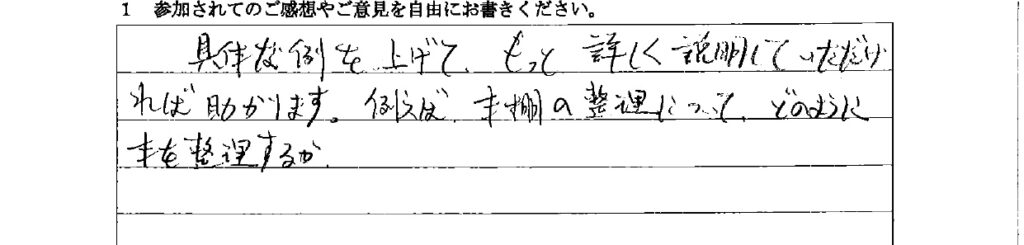 1 参加されてのご感想やご意見を自由にお書きください。
具体な例を上げて、もっと詳しく説明していただけ
れば助かります。例えば、本棚の整理について、どのように
本を整理するか。